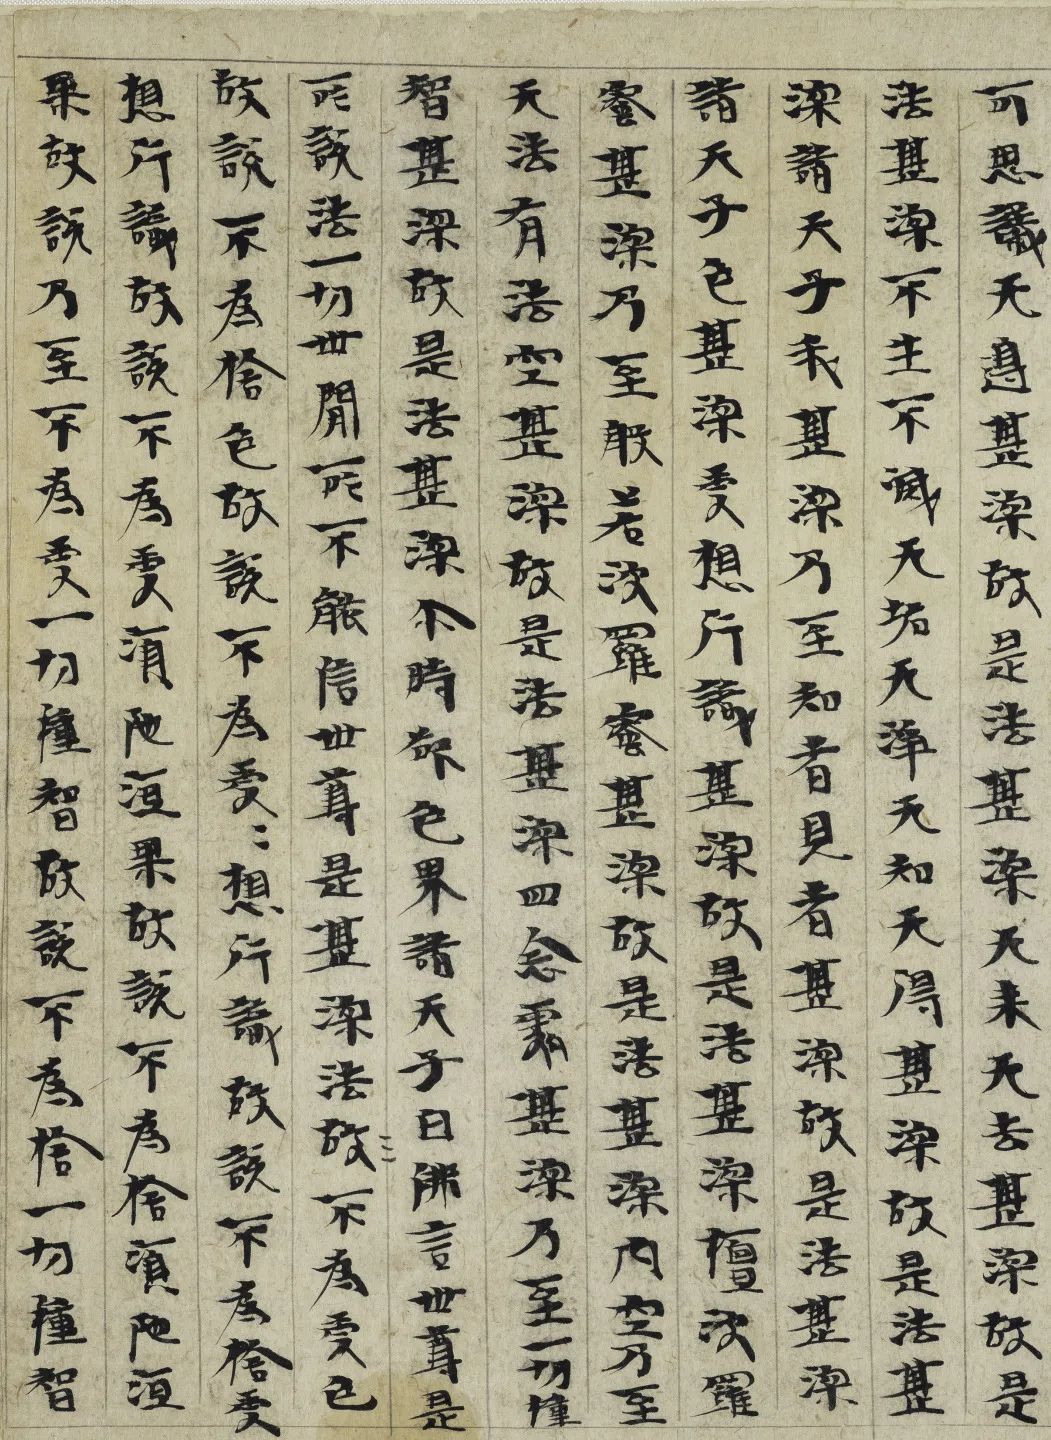 可思議无邊甚深故是法甚深无来无去甚深故是
法甚深不生不滅无垢无淨无知无得甚深故是法甚
深諸天子我甚深乃至知者見者甚深故是法甚深
諸天子色甚深受想行識甚深故是法甚深檀波羅
蜜甚深乃至般若波羅蜜甚深故是法甚深内空乃至
无法有法空甚深故是法甚深四念處甚深乃至一切種
智甚深故是法甚深尒時欲色界諸天子白佛言世尊是
所說法一切世間所不能信世尊是甚深法故不為受色
故說不為捨色故說不為受〻想行識故說不為捨受
想行識故說不為受湏陁洹果故說不為捨湏陁洹
果故說乃至不為受一切種智故說不為捨一切種智